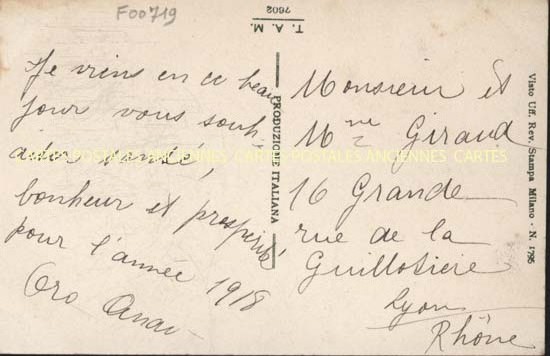 F00719
T. A. M.
7602
Je viens en ce beau
jour vous souh
aiter santé,
bonheur et prospérité
pour l'année 1918
PRODUZIONE ITALIANA
Monsieur et
Mme Giraud
16 Grande
rue de la
Guillotière
Lyon
Rhône
Visto Uff. Rev. Stampa Milano - N. 1795
CARTES POSTALES ANCIENNES CARTES POSTALES ANCIENNES CARTES